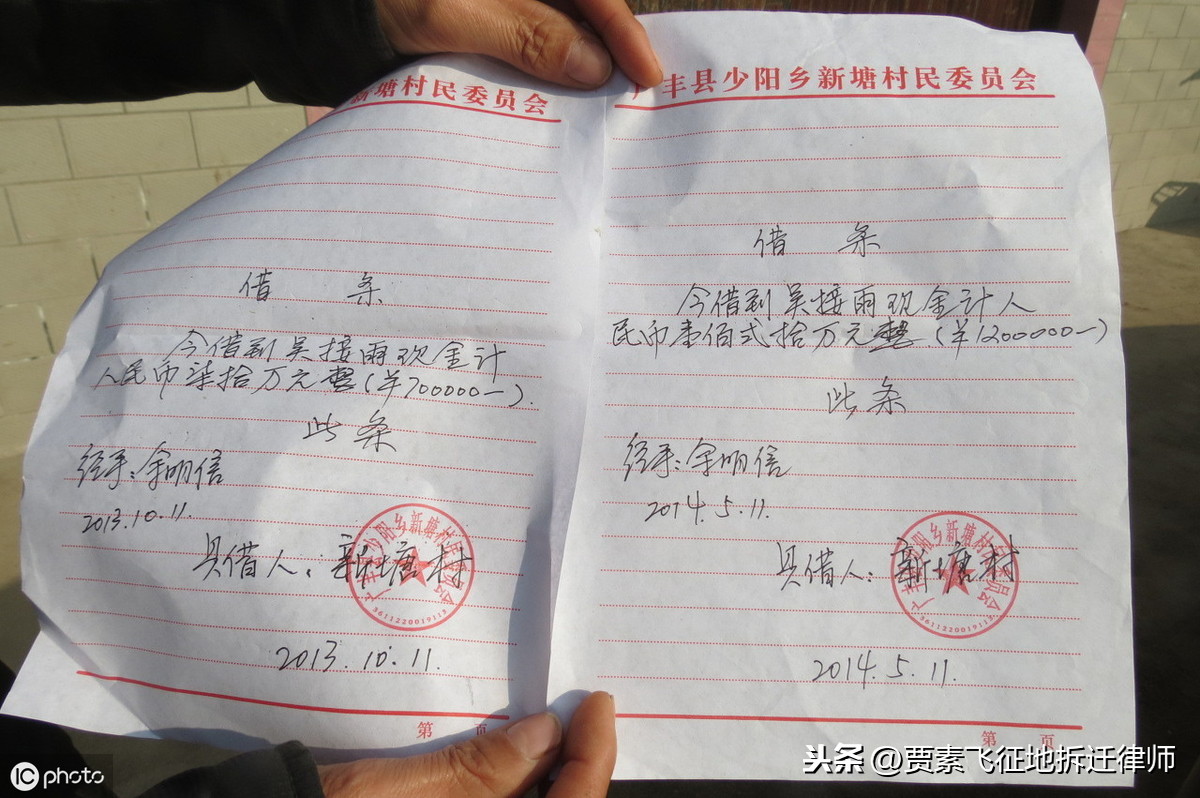 新塘村民委员会
借 条
今借到吴接雨现金计
人民币柒拾万元整(￥700000一).
此条
经手:余明信
2013.10.11.
具借人:新塘村
3611220019113
2013.10.11.
第 页
广丰县少阳乡新塘村民委员会
借 条
今借到吴接雨现金计人
民币壹佰弍拾万元整(￥1200000一)
此条
经手:余明信
2014.5.11.
具借人:新塘村
3611220019113
2014.5.11.
第 页
IC photo
头条@贾素飞征地拆迁律师